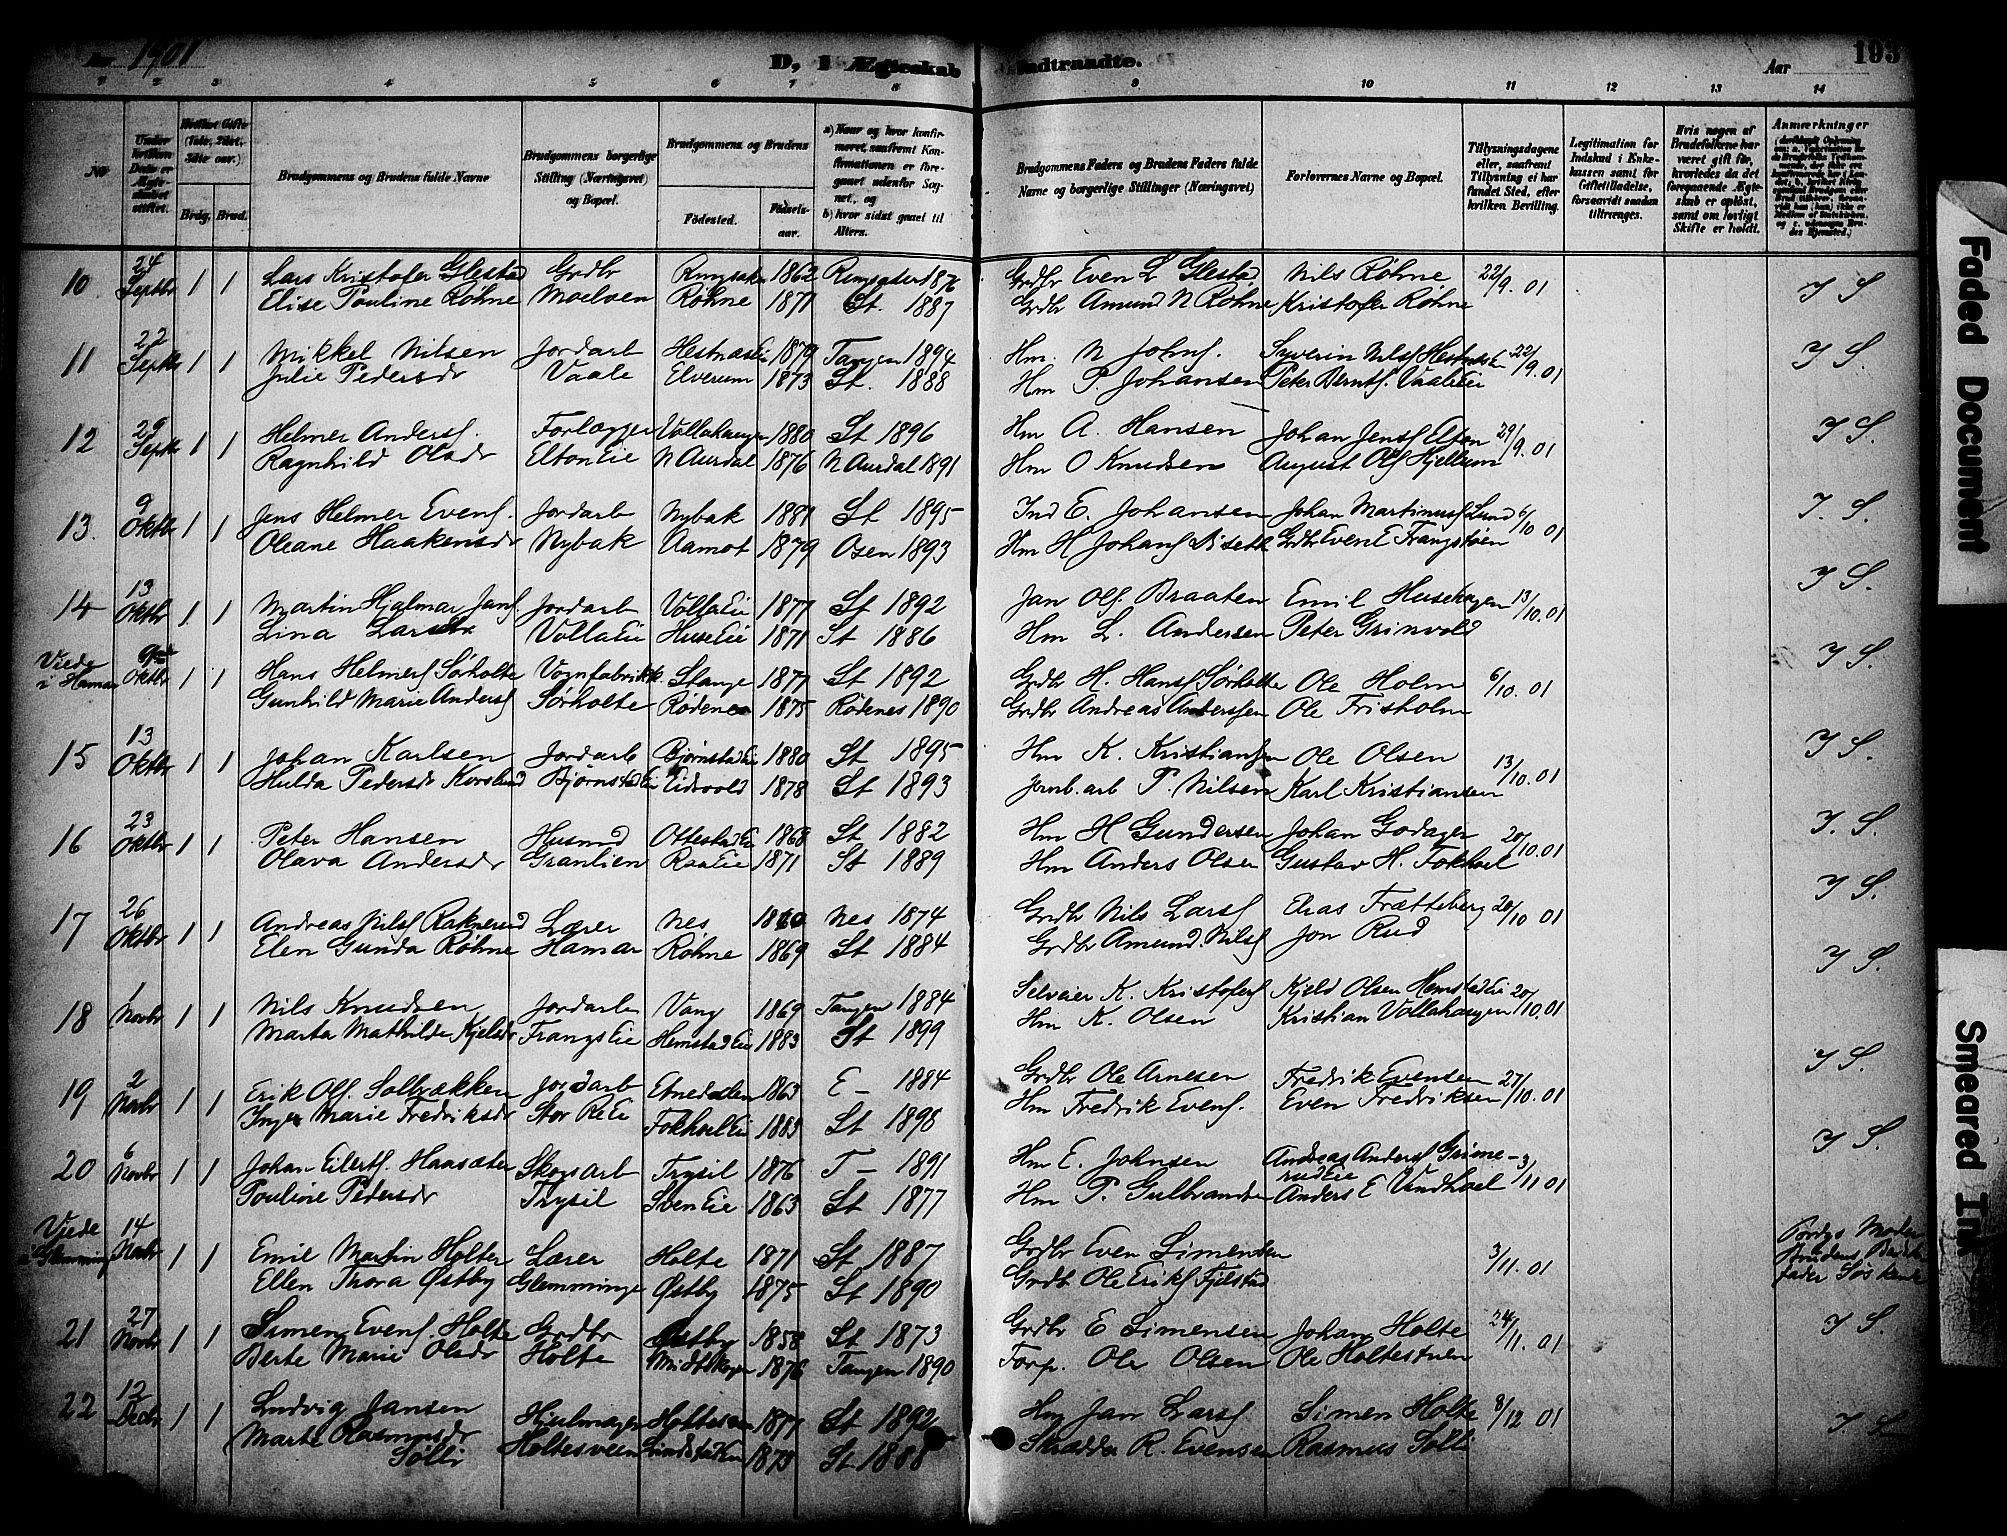 Aar 1901
D, i Ægteskab Indtraadte.
Aar
193
1 2 3 4 5 6 7 8 9 10 11 12 13 14
No
Brudg. Brud.
Brudgommens og Brudens fulde Navne
Brudgommens borgerlige Stilling (Næringsvei) og Bopæl.
Brudgommens og Brudens
Fødested.
Fødsels-aar.
a) Naar og hvor konfirmeret, saafremt Konfirmationen er foregaaet udenfor Sognet, og
b) hvor sidst gaaet til Alters.
Brudgommens Faders og Brudens Faders fulde Navne og borgerlige Stillinger (Næringsvei)
Forlovernes Navne og Bopæl.
Tillysningsdagene eller, saafremt Tillysning ei har fundet Sted, efter hvilken Bevilling.
Legitimation for Indskud i Enkekassen samt for Giftetilladelse, forsaavidt saadan tiltrænges.
Hvis nogen af Brudefolkene har været gift før, hvorledes da det foregaaende Ægteskab er opløst, samt om lovligt Skifte er holdt.
Anmærkninger
10 24 Septbr 1 1 Lars Kristofer Glestad Grdbr Ringsaker 1862 Ringsaker 1876 Grdbr Even L Glestad Nils Røhne 22/9. 01 I S.
Elise Pouline Røhne Moelven Røhne 1871 St. 1887 Grdbr Amund N Røhne Kristofer Røhne
11 22 Septbr 1 1 Mikkel Nilsen Jordarb Hestnæs Ei 1879 Tangen 1894 Hm. N Johns. Syverin Nils 22/9. 01 I S.
Julie Pedersdr Vaale Elverum 1873 St. 1888 Hm P. Johansen Peter Bernts. Vaale Ei
12 29 Septbr 1 1 Helmer Anders. Forlægger Vollahaugen 1880 St 1896 Hm A. Hansen Johan Jens Elton 29/9. 01 I S.
Ragnhild Olsdr Elton Eie N Aurdal 1876 N Aurdal 1891 Hm O Knudsen August Ols Hjellum
13. 9 Oktbr 1 1 Jens Helmer Evens. Jordarb Nybak 1881 St 1895 Ind E. Johansen Johan Martinus Lund 6/10 01 I. S.
Oleane Haakensdr Nybak Aamot 1879 Osen 1893 Hm H Johans Diseth Grdbr Even E Frangstøen
14 13 Oktbr 1 1 Martin Hjalmar Jans. Jordarb Volla Ei 1877 St 1892 Jan Ols. Braaten Emil Husehagen 13/10.01 I S.
Lina Larsdr Volla Ei Huse Eie 1871 St 1886 Hm L. Andersen Peter Grinvold
Viede i Hamar 9 Oktbr 1 1 Hans Helmers Sørholte Vognfabrikk. Stange 1877 St 1892 Grdbr H. Hans Sørholte Ole Holm 6/10. 01 I S.
Gunhild Marie Anders Sørholte Rødenes 1875 Rødenes 1890 Grdbr Andreas Anderssen Ole Frisholm
15 13 Oktbr 1 1 Johan Karlsen Jordarb Bjørnstad Ei 1880 St 1895 Hm K. Kristiansen Ole Olsen 13/10.01 I S.
Hulda Pedersdr Korslund Bjørnstad Ei Eidsvold 1878 St 1893 Jernb. arb P. Nilsen Karl Kristiansen
16 23 Oktbr 1 1 Peter Hansen Husmd Ottestad Ei 1868 St 1882 Hm H Gundersen Johan Godager 20/10.01 I. S.
Olava Andersdr Granlien Raa Eie 1871 St 1889 Hm Anders Olsen Gustav H. Fokhoel
17 26 Oktbr 1 1 Andreas Nils Raknerud Lærer Nes 1860 Nes 1874 Grdbr Nils Lars Elias Frætteberg 20/10 01 I S.
Elen Gunda Røhne Hamar Røhne 1869 St 1884 Grdbr Amund Nils Jon Rud
18 1 Novbr 1 1 Nils Knudsen Jordarb Vang 1869 Tangen 1884 Selveier K. Kristofers Kjeld Olsen Hemstad Ei 20/10.01 I S.
Marta Mathilde Kjeldsdr Frangs Eie Hemstad Eie 1883 St 1899 Hm K. Olsen Kristian Vollahaugen
19 2 Novbr 1 1 Erik Ols. Solbrækken Jordarb Etnedalen 1863 E - 1884 Grdbr Ole Arnesen Fredrik Evensen 27/10. 01 I S.
Inger Marie Fredriksdr Stor Re Ei Fokhol Ei 1883 St 1898 Hm Fredrik Evens. Even Fredriksen
20 6 Novbr 1 1 Johan Eilerts. Haasæter Skogsarb Trysil 1876 T - 1891 Hm E. Johnsen Andreas Anders Grimerud Eie 3/11 01 I S.
Pouline Pedersdr Trysil Sven Eie 1863 St 1877 Hm P. Gulbrandsen Anders E Vindhoel
Viede i Glemminge 14 Novbr 1 1 Emil Martin Holter Lærer Holte 1871 St 1887 Grdbr Even Simensen 3/11. 01 Brudgs Moder
Ellen Thora Østby Glemminge Østby 1875 St 1890 Grdbr Ole Eriks Fjelstad Brudens Bedstefader Søskende
21 27 Novbr 1 1 Simen Evens. Holte Grdbr Østby 1858 St 1873 Grdbr E Simensen Johan Holte 24/11. 01 I S.
Berte Marie Olsdr Holte Midtskogen 1876 Tangen 1890 Forp. Ole Olsen Ole Holtestuen
22 12 Decbr 1 1 Ludvig Jansen Hjulmager Holtesveen 1877 St 1892 Hm Jan Lars Simen Holte 8/12 01 I S.
Marte Rasmusdr Sølli Holtesveen 1873 St 1888 Skrædder R. Evensen Rasmus Sølli
Faded Document
Smeared Ink